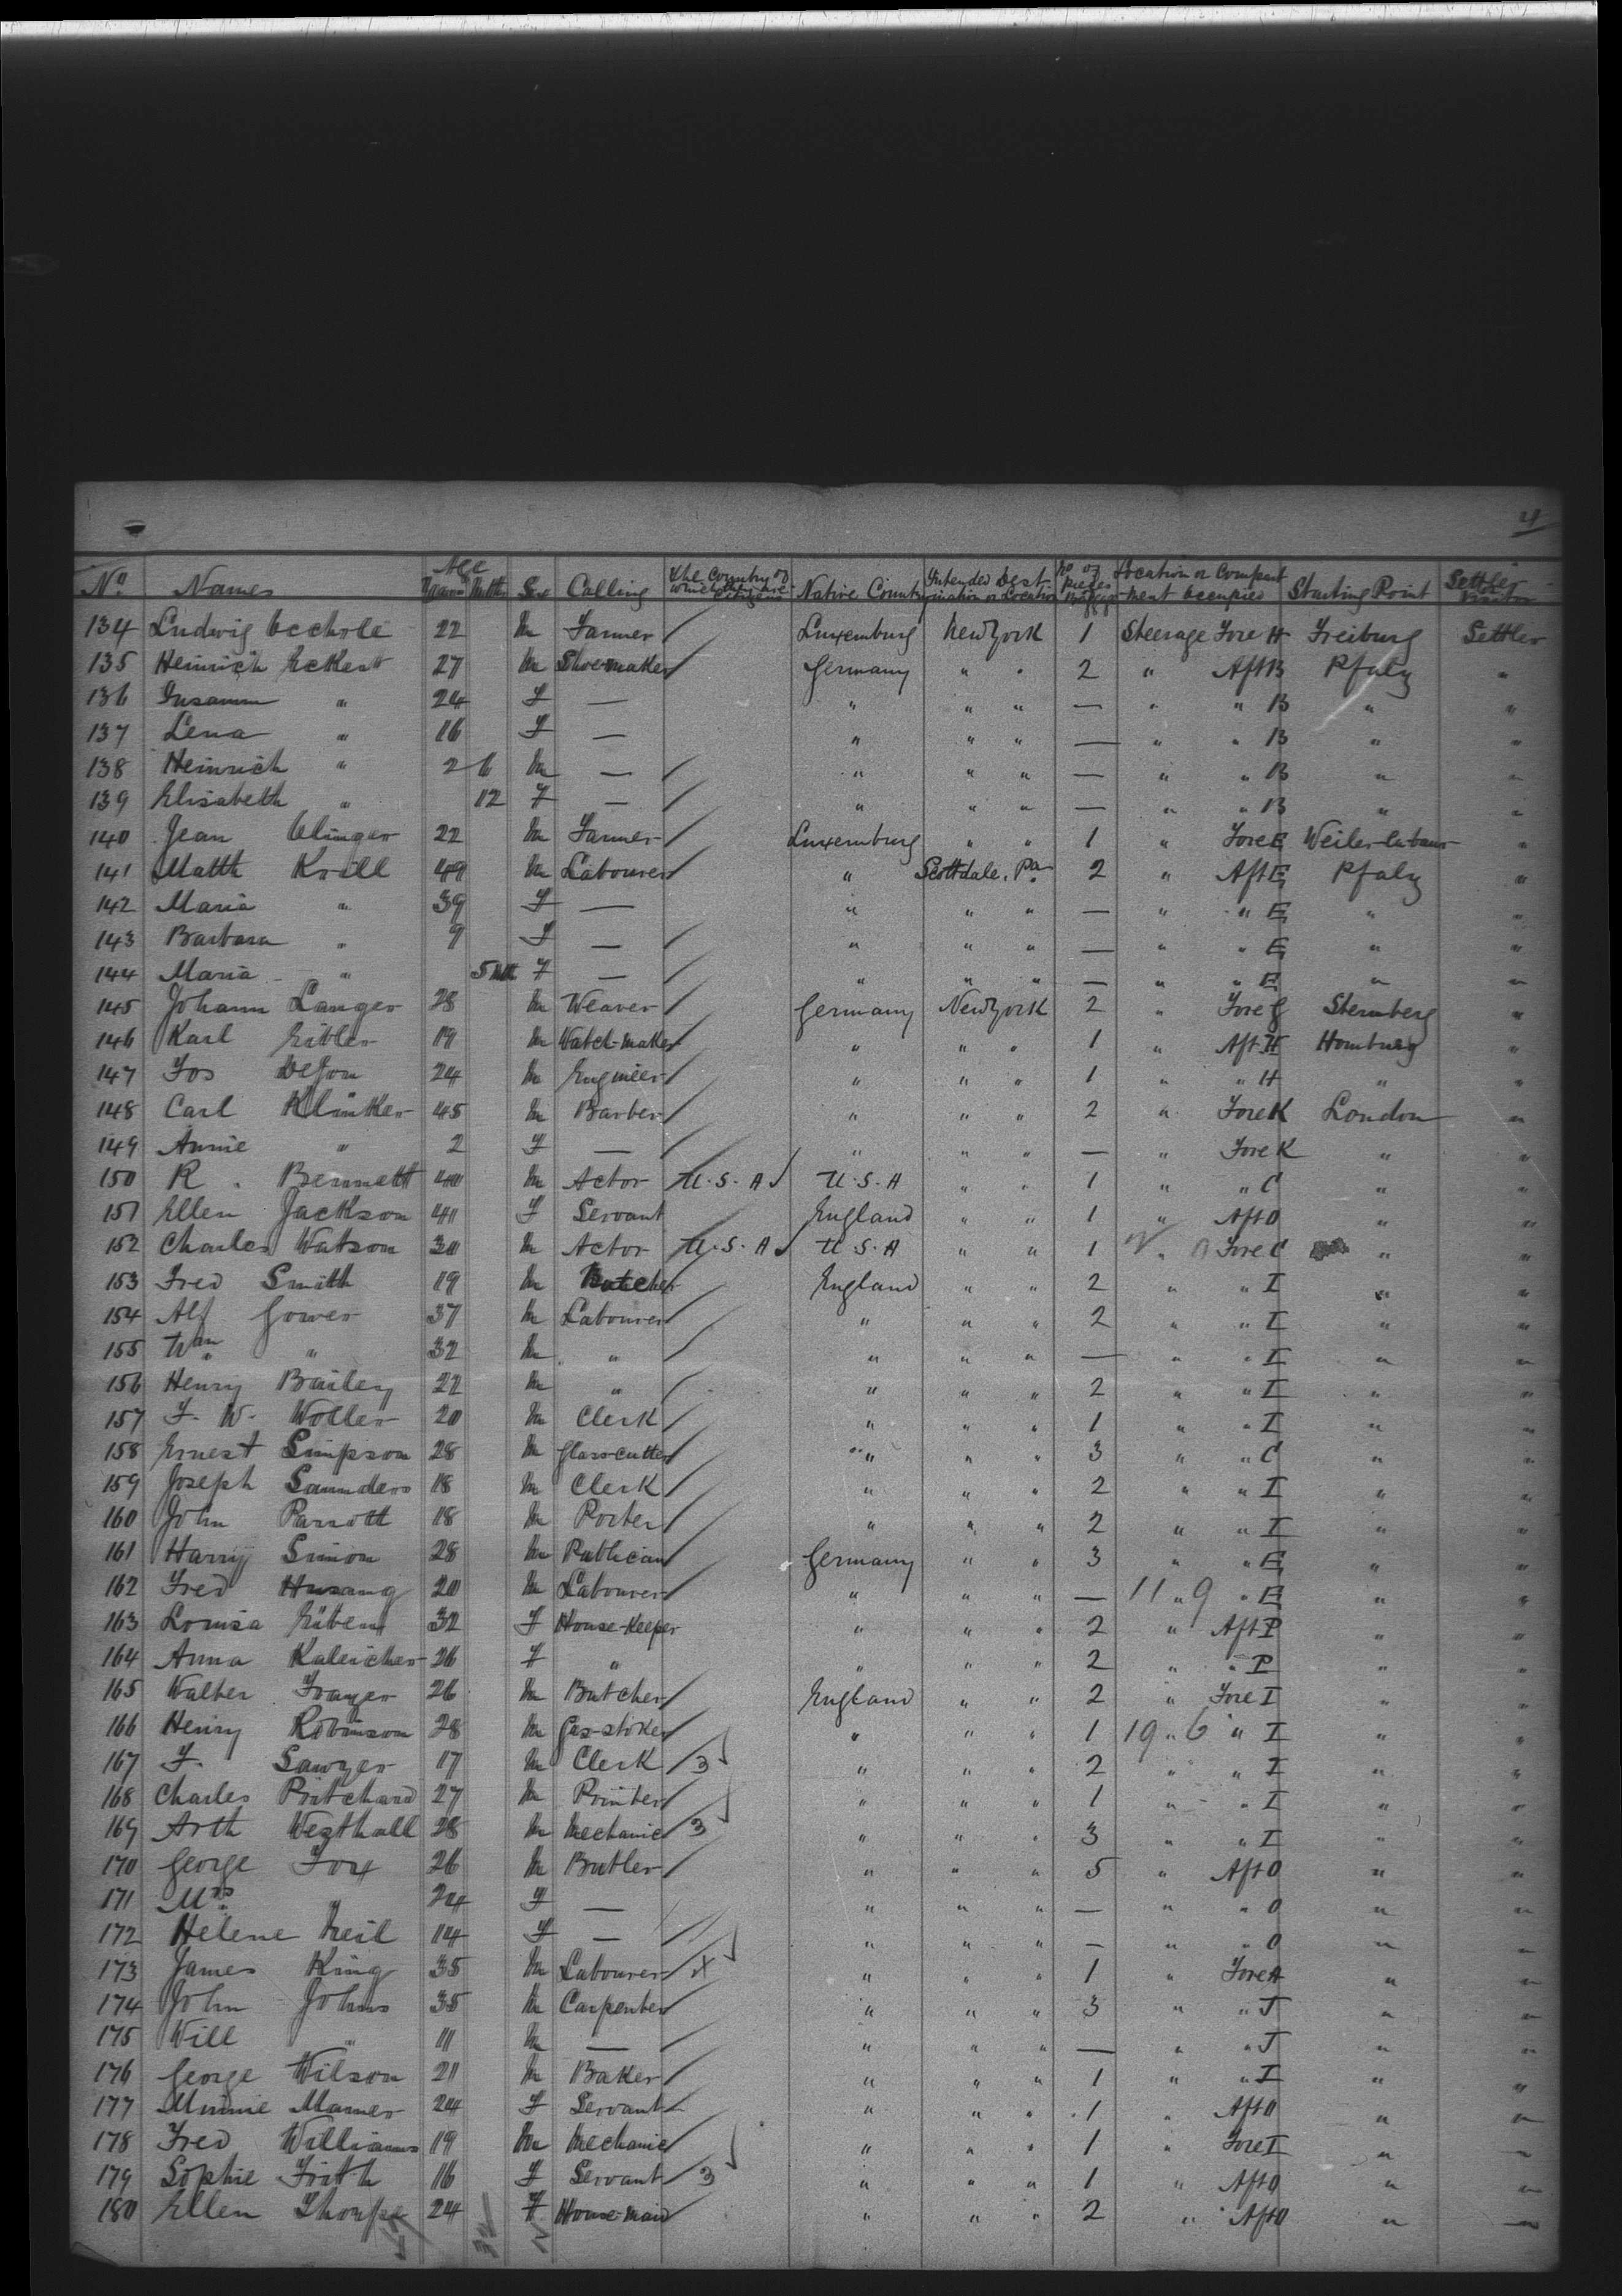 4
No. Names Age Years Mths Sex Calling The Country of which they are Citizens Native Country Intended Destination or Location No of pieces Baggage Location or Compartment occupied Starting Point Settler Visitor
134 Ludwig 22 M Farmer Luxemburg New York 1 Steerage Fore H Freiburg Settler
135 Heinrich Eckert 27 M Shoemaker Germany " " 2 " Aft B Pfalz "
136 " 24 F — " " " — " " B " "
137 Lena " 16 F — " " " — " " B " "
138 Heinrich " 2 6 M — " " " — " " B " "
139 Elisabeth " 12 F — " " " — " " B " "
140 Jean 22 M Farmer Luxemburg " " 1 " Fore E Weiler "
141 Matth Krill 49 M Labourer " Scottdale, Pa. 2 " Aft E Pfalz "
142 Maria " 39 F — " " " — " " E " "
143 Barbara " 9 F — " " " — " " E " "
144 Maria " 5 Mth F — " " " — " " E " "
145 Johann Langer 28 M Weaver Germany New York 2 " Fore G Sternberg "
146 Karl 19 M Watch-maker " " " 1 " Aft H Homburg "
147 Jos 24 M Engineer " " " 1 " " H " "
148 Carl Klinker 45 M Barber " " " 2 " Fore K London "
149 Annie " 2 F — " " " — " Fore K " "
150 R. Bennett 40 M Actor U.S.A U.S.A " " 1 " " C " "
151 Ellen Jackson 41 F Servant England " " 1 " Aft O " "
152 Charles Watson 30 M Actor U.S.A U.S.A " " 1 " Fore C " "
153 Fred Smith 19 M Butcher England " " 2 " " I " "
154 Alf Gower 37 M Labourer " " " 2 " " I " "
155 Wm " 32 M " " " " — " " I " "
156 Henry Bailey 22 M " " " " 2 " " I " "
157 F. W. Woller 20 M Clerk " " " 1 " " I " "
158 Ernest Simpson 28 M Glass-cutter " " " 3 " " C " "
159 Joseph Saunders 18 M Clerk " " " 2 " " I " "
160 John Parrott 18 M Porter " " " 2 " " I " "
161 Harry Simon 28 M Publican Germany " " 3 " " E " "
162 Fred Husang 20 M Labourer " " " — 11 " 9 " E " "
163 Louisa 32 F House-Keeper " " " 2 " Aft P " "
164 Anna Kaleicher 26 F " " " " 2 " " P " "
165 Walter Frayer 26 M Butcher England " " 2 " Fore I " "
166 Henry Robinson 28 M Gas-stoker " " " 1 19 " 6 " I " "
167 F. Sawyer 17 M Clerk 3 " " " 2 " " I " "
168 Charles Pritchard 27 M Printer " " " 1 " " I " "
169 Arth Westhall 28 M Mechanic 3 " " " 3 " " I " "
170 George Fox 26 M Butler " " " 5 " Aft O " "
171 Mrs. " 24 F — " " " — " " O " "
172 Helene Neil 14 F — " " " — " " O " "
173 James King 35 M Labourer X " " " 1 " Fore A " "
174 John Johns 35 M Carpenter " " " 3 " " J " "
175 Will " 11 M — " " " — " " J " "
176 George Wilson 21 M Baker " " " 1 " " I " "
177 Minnie Mamer 24 F Servant " " " 1 " Aft O " "
178 Fred Williams 19 M Mechanic " " " 1 " Fore I " "
179 Sophie Frith 16 F Servant 3 " " " 1 " Aft O " "
180 Ellen Thorpe 24 F House-maid " " " 2 " Aft O " "